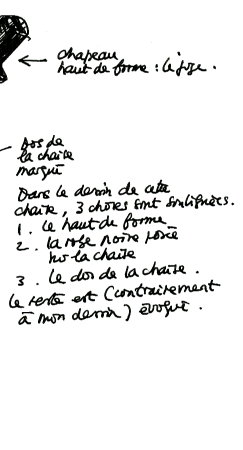 chapeau
haut de forme : le juge.
Dos de
la chaise
marqué
Dans le dessin de cette
chaise, 3 choses sont soulignées.
1. Le haut de forme
2. la robe noire posée
sur la chaise
3. Le dos de la chaise.
Le reste est (contrairement
à mon dessin) évoqué.